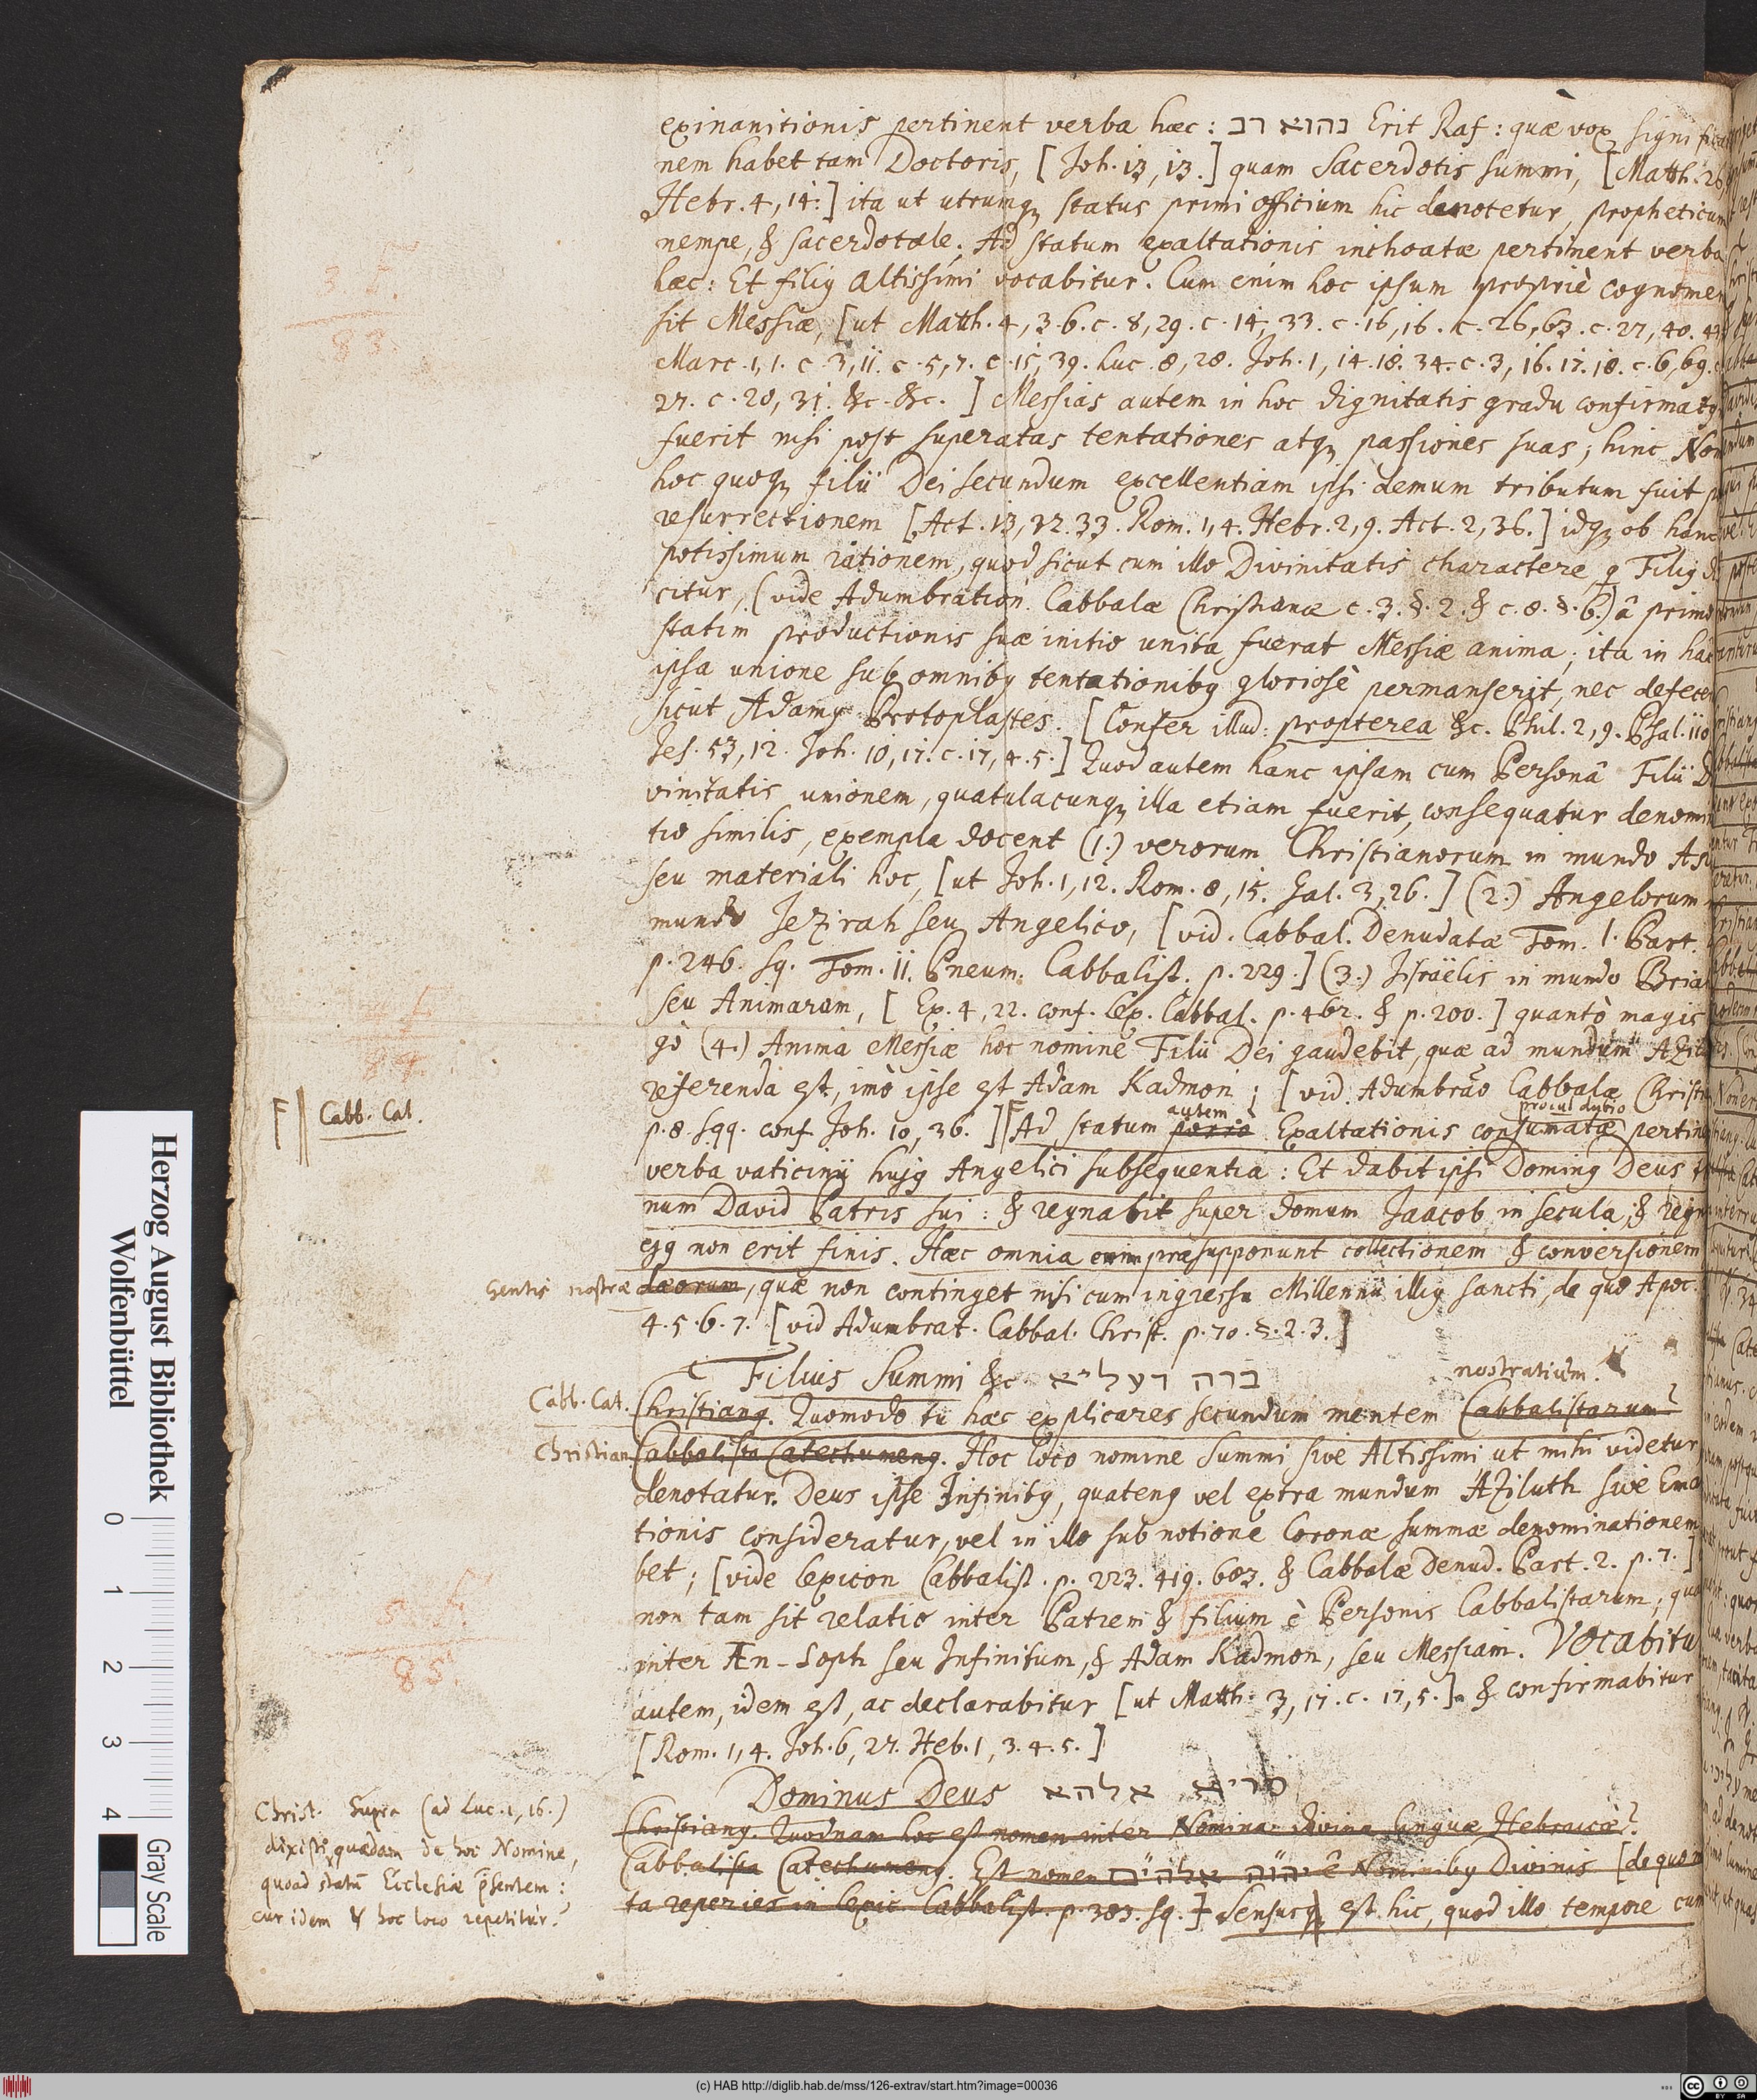 exinanitionis pertinent verba hæc: נהוא רב Erit Raf: quæ vox signifi
nem habet tam Doctoris, [Joh. 13, 13.] quam Sacerdotis summi, [Matth. 26
Hebr. 4, 14.] ita ut utrumqꝫ status primi officium hic denotetur, propheticum
nempe, & sacerdotale. Ad statum exaltationis inchoatæ pertinent verba
hæc: Et filiꝰ altissimi vocabitur. Cum enim hoc ipsum propriè cognomen
sit Messiæ, [ut Matth. 4, 3. 6. c. 8, 29. c. 14, 33. c. 16, 16. c. 26, 63. c. 27, 40. 43
Marc. 1, 1. c. 3, 11. c. 5, 7. c. 15, 39. Luc. 8, 28. Joh. 1, 14. 18. 34. c. 3, 16. 17. 18. c. 6, 69. c.
27. c. 20, 31. &c. &c.] Messias autem in hoc dignitatis gradu confirmatꝰ
fuerit nisi post superatas tentationes atqꝫ passiones suas; hinc Nom
hoc quoqꝫ filii Dei secundum excellentiam ipsi demum tributum fuit p
resurrectionem [Act. 13, 32. 33. Rom. 1, 4. Hebr. 2, 9. Act. 2, 36.] idqꝫ ob hanc
potissimum rationem, quod sicut cum illo Divinitatis charactere, q Filiꝰ di
citur, (vide Adumbration. Cabbalæ Christianæ c. 3. §. 2. & c. 8. §. 6.) â primo
statim productionis suæ initio unita fuerat Messiæ anima; ita in hac
ipsa unione sub omnibꝰ tentationibꝰ gloriosè permanserit, nec defecer
sicut Adamꝰ Protoplastes. [Confer illud: propterea &c. Phil. 2, 9. Psal. 110
Jes. 53, 12. Joh. 10, 17. c. 17, 4. 5.] Quod autem hanc ipsam cum Personâ Filii Di
vinitatis unionem, quatulacunqꝫ illa etiam fuerit, consequatur denomi
tio similis, exempla docent (1.) verorum Christianorum in mundo Asi
seu materiali hoc, [ut Joh. 1, 12. Rom. 8, 15. Gal. 3, 26.] (2.) Angelorum
mundo Jezirah seu Angelico, [vid. Cabbal. Denudatæ Tom. 1. Part.
p. 246. sq. Tom. II. Pneum. Cabbalist. p. 229.] (3.) Israëlis in mundo Bria
seu Animarum, [Ex. 4, 22. conf. Lex. Cabbal. p. 462. & p. 200.] quantò magis
gò (4.) Anima Messiæ hoc nomine Filii Dei gaudebit, quæ ad mundum Azil
referenda est, imò ipse est Adam Kadmon; [vid. Adumbrão Cabbalæ Christi
F Cabb. Cat.
p. 8. sqq. conf. Joh. 10, 36.] F Ad statum porrò autem Exaltationis consumatæ procul dubio pertine
verba vaticinij hujꝰ Angelici subsequentia: Et dabit ipsi Dominꝰ Deus
num David Patris sui: & regnabit super domum Jaacob in secula; & regn
ejꝰ non erit finis. Hæc omnia enim præsupponunt collectionem & conversionem
Gentis nostræ dæorum, quæ non continget nisi cum ingressu Millennii illiꝰ sancti, de quo Apoc.
4. 5. 6. 7. [vid Adumbrat. Cabbal. Christ. p. 70. §. 2. 3.]
Filius Summi &c ברה דעליא
nostratium.
Cabb. Cat. Christianꝰ. Quomodo tu hæc explicares secundum mentem Cabbalistarum?
Christian. Cabbalista Catechumenꝰ. Hoc loco nomine Summi sive Altissimi ut mihi videtur
denotatur. Deus ipse Infinitꝰ, quatenꝰ vel extra mundum Aziluth sive Ema
tionis consideratur, vel in illo sub notione Coronæ summæ denominationem
bet; [vide Lexicon Cabbalist. p. 223. 419. 603. & Cabbalæ Denud. Part. 2. p. 7.]
non tam sit relatio inter Patrem & filium è Personis Cabbalistarum; qua
inter Æn-Soph seu Infinitum, & Adam Kadmon, seu Messiam. Vocabitu
autem, idem est, ac declarabitur [ut Matth. 3, 17. c. 17, 5.] & confirmabitur
[Rom. 1, 4. Joh. 6, 27. Heb. 1, 3. 4. 5.]
Dominus Deus מריא אלהא
Christianꝰ. Quodnam hoc est nomen inter Nomina divina linguæ Hebraicæ?
Cabbalista Catechumenꝰ. Est nomen יהוה אלהים è Nominibꝰ Divinis [de quo m
ta reperies in Lexic. Cabbalist. p. 383. sq.] Sensusqꝫ est hic, quod illo tempore cum
Christ. Supra (ad Luc. 1, 16.)
dixisti quædam de hoc Nomine,
quoad statũ Ecclesiæ p̃sentem:
cur idem hoc loco repetitur?
3 F.
83.
4 F
84.
5 F.
85.
Herzog August Bibliothek
Wolfenbüttel
0 1 2 3 4
Gray Scale
(c) HAB http://diglib.hab.de/mss/126-extrav/start.htm?image=00036